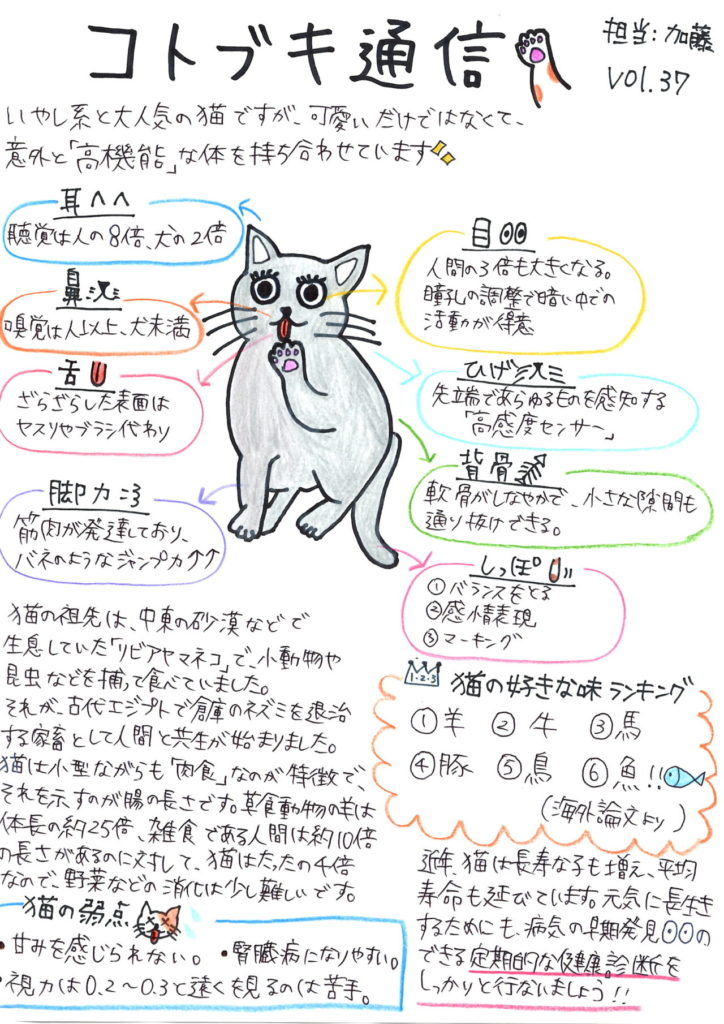 コトブキ通信
担当:加藤
VOl.37
いやし系と大人気の猫ですが、可愛いだけではなくて、
意外と「高機能」な体を持ち合わせています
耳
聴覚は人の8倍、犬の2倍
鼻
嗅覚は人以上、犬未満
舌
ざらざらした表面は
ヤスリやブラシ代わり
脚力
筋肉が発達しており、
バネのようなジャンプ力↑↑
目
人間の3倍も大きくなる。
瞳孔の調整で暗い中での
活動が得意
ひげ
先端であらゆるものを感知する
「高感度センサー」
背骨
軟骨がしなやかで、小さな隙間も
通り抜けできる。
しっぽ
①バランスをとる
②感情表現
③マーキング
猫の祖先は、中東の砂漠などで
生息していた「リビアヤマネコ」で、小動物や
昆虫などを捕って食べていました。
それが、古代エジプトで倉庫のネズミを退治
する家畜として人間と共生が始まりました。
猫は小型ながらも「肉食」なのが特徴で、
それを示すのが腸の長さです。草食動物の羊は
体長の約25倍、雑食である人間は約10倍
の長さがあるのに対して、猫はたったの4倍
なので、野菜などの消化は少し難しいです。
1・2・3
猫の好きな味ランキング
①羊 ②牛 ③馬
④豚 ⑤鳥 ⑥魚!!
(海外論文より)
猫の弱点
・甘みを感じられない。 ・腎臓病になりやすい。
・視力は0.2~0.3と遠くを見るのは苦手。
近年、猫は長寿な子も増え、平均
寿命も延びています。元気に長生き
するためにも、病気の早期発見の
できる定期的な健康診断を
しっかりと行ないましょう!!